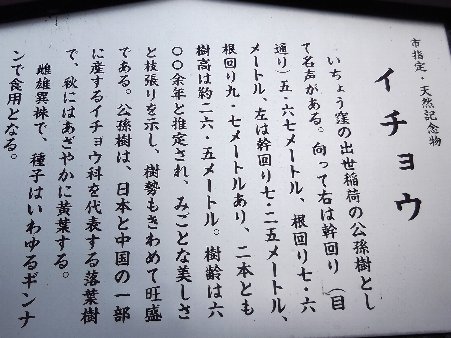 市指定・天然記念物
イチョウ
いちょう窪の出世稲荷の公孫樹とし
て名声がある。向って右は幹回り（目
通り）五・六七メートル、根回り七・六
メートル、左は幹回り七・二五メートル、
根回り九・七メートルあり、二本とも
樹高は約二六・五メートル。樹齢は六
〇〇余年と推定され、みごとな美しさ
と枝張りを示し、樹勢もきわめて旺盛
である。公孫樹は、日本と中国の一部
に産するイチョウ科を代表する落葉樹
で、秋にはあざやかに黄葉する。
雌雄異株で、種子はいわゆるギンナ
ンで食用となる。